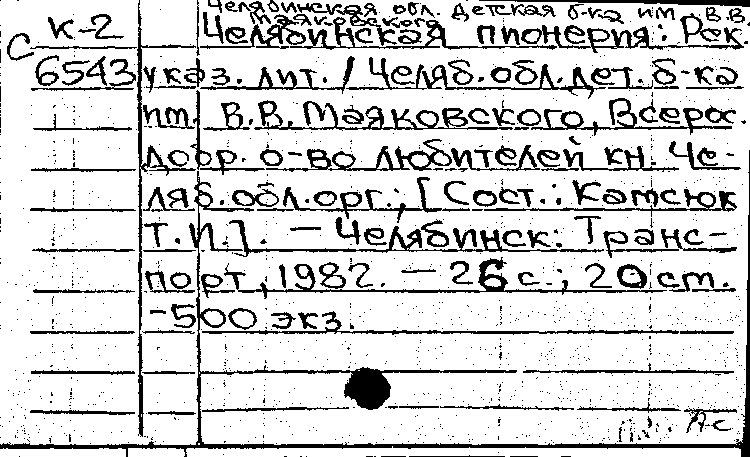 Челябинская обл. детская б-ка им. В.В.
Маяковского
К-2 Челябинская пионерия: Рек.
С 6543 указ. лит. / Челяб. обл. дет. б-ка
им. В.В. Маяковского, Всерос.
добр. о-во любителей кн. Че-
ляб. обл. орг.; [Сост.: Катсюк
Т.И.]. — Челябинск: Транс-
порт, 1982. — 26 с.; 20 ст.
-500 экз.
Ас